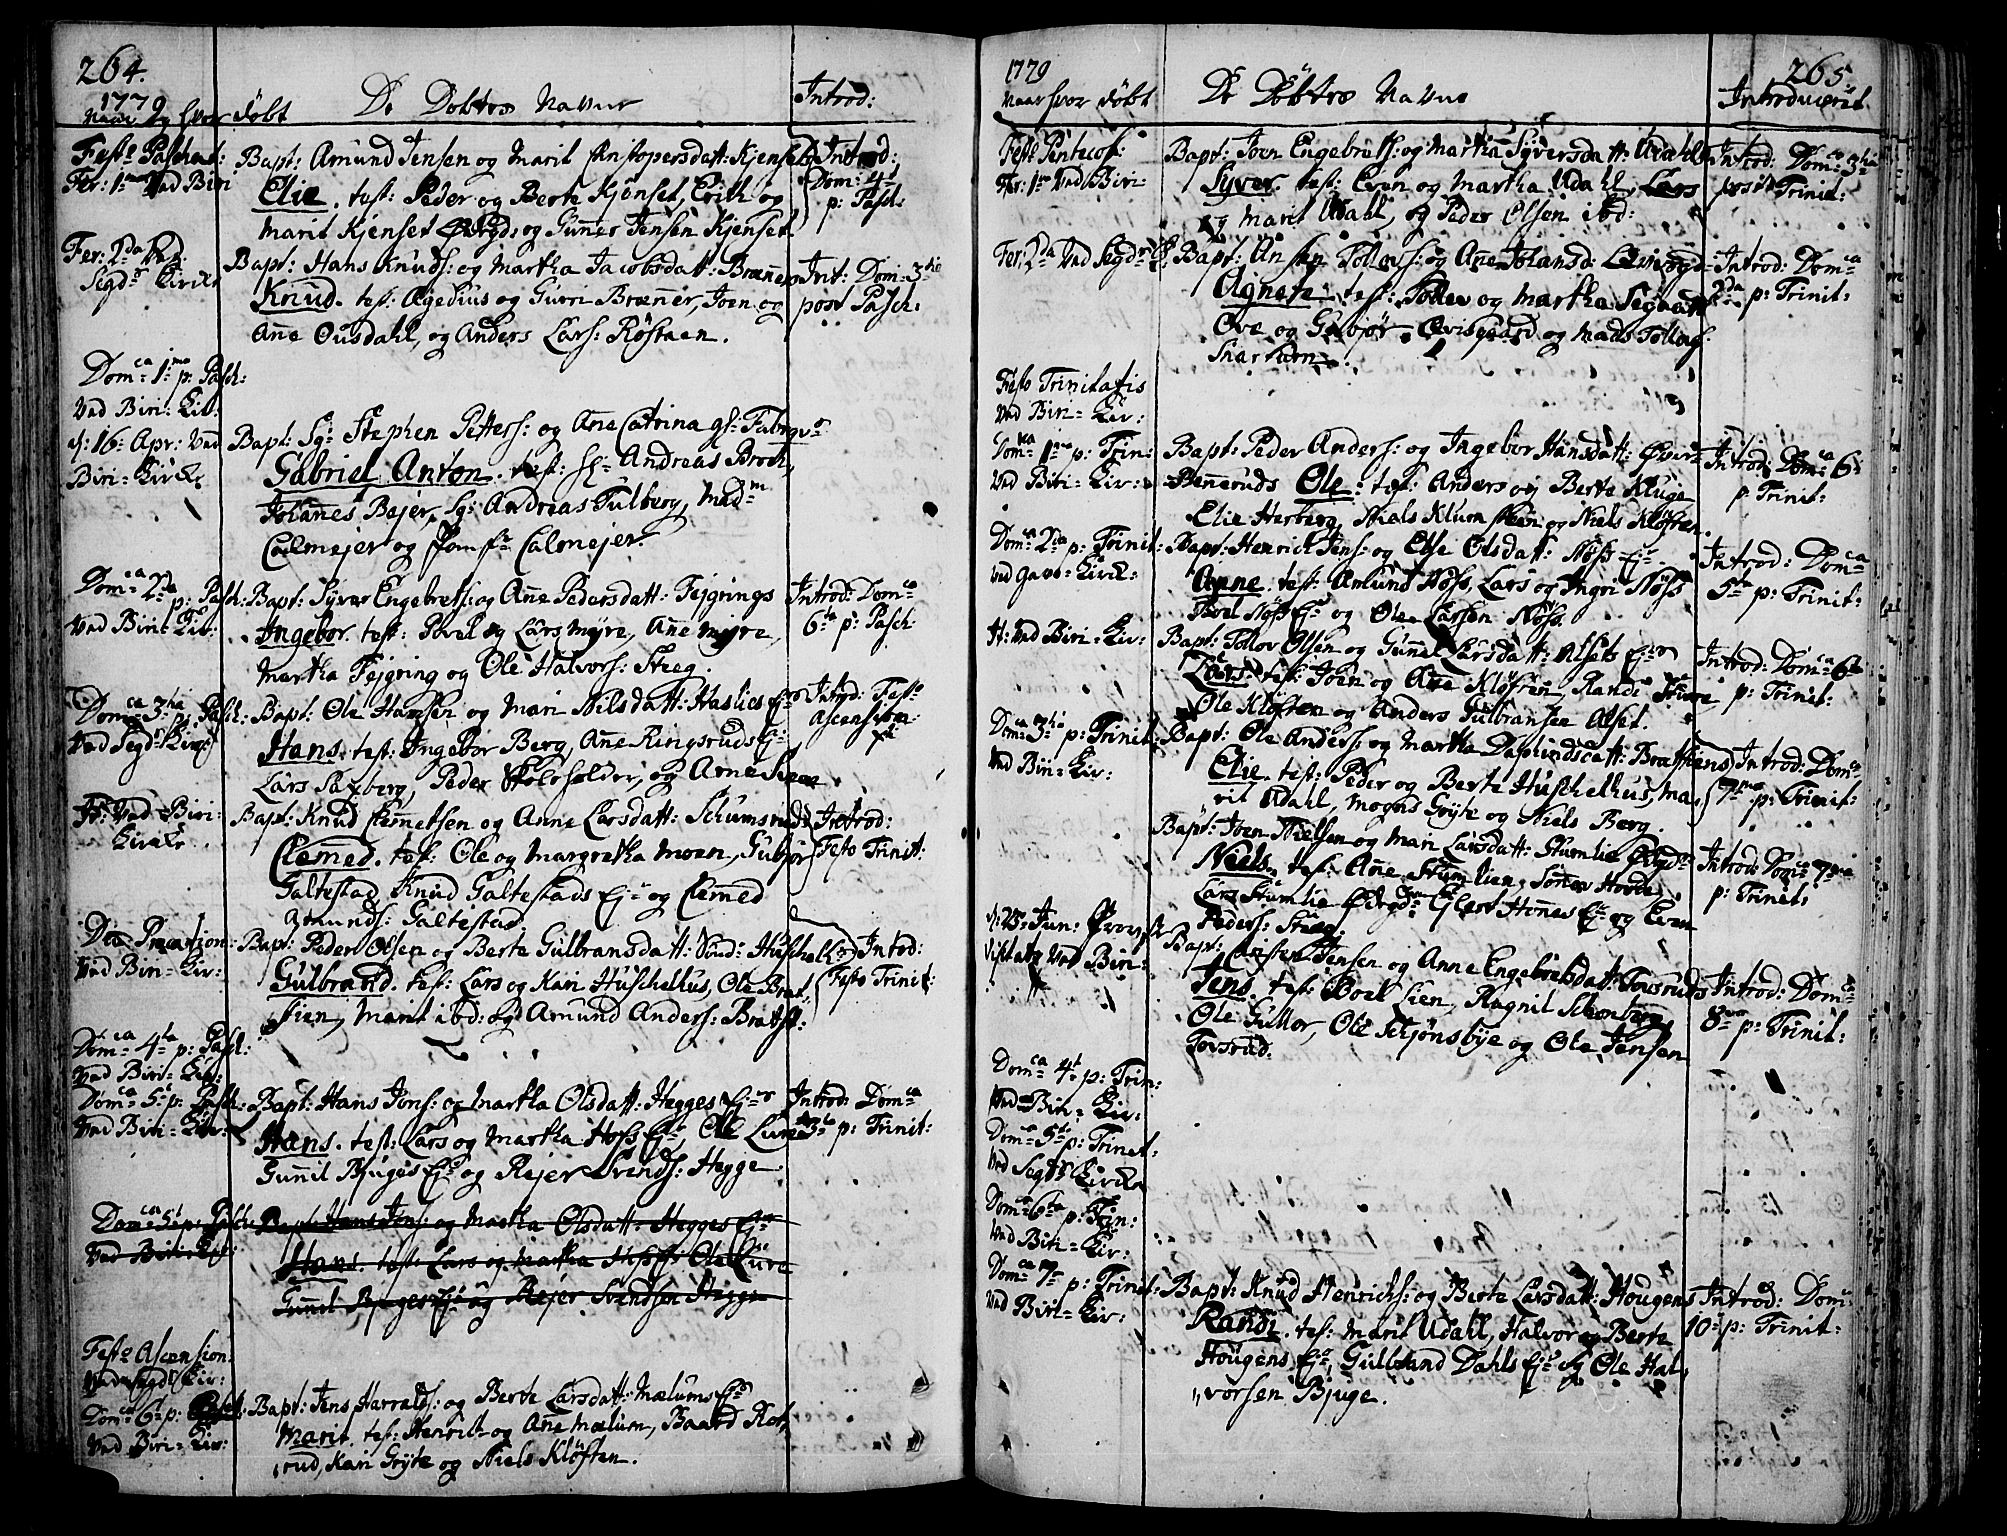 264.
1779
Naar og hvor døbt
De Døbtes Navne
Introd:
Festo Paschat:
Fer: 1ma Ved Biri
Bapt: Amund Jensen og Marit Kristopersdatt: Kjenset
Elie. test: Peder og Berte Kjønset, Erich og
Marit Kjenset og Guner Jensen Kjenset.
Introd:
Dom: 4ta
p: Pasch:
Fer: 2da Ved
Segd: Kircke
Bapt: Hans Knuds: og Martha Jacobsdatt: Brænner
Knud. test: og Gurri Brænner, Joen og
Ane Ousdahl, og Anders Lars: Røstøen.
Init: Dom: 3tia
post Pasch:
Dom:ca 1ma p: Pasch:
Ved Biri: Kir:
d: 16 Apr: Ved
Biri = Kircke
Bapt: Sg: Stephen Petters: og Ane Catrina
Gabriel Anton. test: Andreas Broch,
Johannes Bejer, Sg: Andreas Fulberg, Madm
Calmejer og Jomfr Calmejer.
Dom:ca 2da p: Pasch:
Ved Biri: Kir:
Bapt: Syver Engebrets: og Anne Pedersdatt: Fejgrings
Ingebor. test: Povel og Lars Myre, Anne Myre,
Martha Fejgring og Ole Halvors: Steeg.
Introd: Domca
6ta p: Pasch:
Domca 3tia p: Pasch:
Ved Segd: Kirc:
Bapt: Ole Hansen og Mari Nilsdatt: Haslies Ejr
Hans. test: Ingebor Berg, Anne Ringsruds Ej:
Lars Saxberg, Peder Skoleholder, og Arne
Introd: Festo
Ascension:
It: Ved Biri:
Kircke
Bapt: Knud Clemetsen og Anne Larsdatt: Schumsruds
Clemed. test: Ole og Margretha Moen, Gubjør
Galtestad, Knud Galtestads Ejr og Clemed
Amunds: Galtestad
Introd:
Festo Trinit:
Die Precation:
Ved Biri = Kir:
Bapt: Peder Olsen og Berte Gulbransdatt: Hüschelhus
Gulbrand. test: Lars og Kari Hüschelhus, Ole Brat,
stien, Marit ibd: og Amund Anders: Bratst:
Introd:
Festo Trinit:
Domca 4ta p: Pasch:
Ved Biri = Kir:
Domca 5t p: Pasch:
Ved Biri = Kir:
Bapt: Hans Jens: og Martha Olsdatt: Hegges Ejr
Hans. test: Lars og Martha Hoss Ejr, Ole Lure
Gunnil Bjuges Ejr og Rejer Svends: Hegge.
Introd: Domca
3tia p: Trinit:
Domca 5t p: Pasch:
Ved Biri = Kir:
Bapt: Hans Jens: og Martha Olsdatt: Hegges Ejr
Hans. test: Lars og Martha Hoss Ole Lure
Gunnil Bjuges Ejr og Rejer Svendsen Hegge
Festo Ascension:
Ved Segd: Kir:
Domca 6ta p: Pasch:
Ved Biri = Kir:
Bapt: Jens Harralds: og Berte Larsdatt: Mælums Ejr
Marit. test: Henrik og Ane Mælum, Baard Rot,
rud, Kari Gryte og Niels Kløften.
1779
265
Naar hvor døbt
De Døbtes Navne
Introducerit
Festo Pentecost:
Fer: 1ma Ved Biri
Bapt: Joen Engebrets: og Martha Syversdatt: Udahls
Syver. test: Even og Martha Udahl, Lars
og Marit Udahl, og Peder Olsen ibd:
Introd: Domca 3tia
post Trinit:
Fer: 2da Ved Segd: K:
Bapt: Tollevs: og Ane Johansd:
Agnete. test: Tollev og Martha
Ove og Gubjør Qvisgaard og Mads Tollevs:
Introd: Domca
2da p: Trinit:
Festo Trinitatis
Ved Biri = Kir:
Domca 1ma p: Trin:
Ved Biri = Kir:
Bapt: Peder Anders: og Ingebor Hansdatt: Øver
Benneruds Ole. test: Anders og Berte Kluge
Elie Herberg, Niels Klum og Niels Kløften.
Introd: Domca 6
p: Trinit:
Domca 2da p: Trinit:
Ved Kirck:
Bapt: Henrich Jens: og Else Olsdatt: Nøss Ejr
Anne. test: Amund Nøss, Lars og Ingri Nøss
Povel Nøss Ejr og Ole Larsen Nøss.
Introd: Domca
5ta p: Trinit:
It: Ved Biri = Kir:
Bapt: Tollov Olsen og Gunnel Larsdatt: Alsets Ejr
Lars. test: Joen og Ane Kløften, Randi
Ole Kløften og Anders Gulbransen Alset.
Introd: Domca 6ta
p: Trinit:
Domca 3tia p: Trinit:
Ved Biri = Kir:
Bapt: Ole Anders: og Martha Bratstiens
Elie. test: Peder og Berte Hüschelhus, Ma,
rit Udahl, Mogns Gryte og Niels Berg.
Introd: Domca
7ma p: Trinit:
Bapt: Joen Nielsen og Mari Larsdatt: Stumlie
Niels. test: Anne Stumlien, Hovde,
Lars Stumlie Hønes Ejr og Even
Peders: Steeg.
Introd: Domca 7ma
p: Trinit:
d: 25 Jun: Provst
Visitatz Ved Biri =
Bapt: Jensen og Anne Engebretsdatt: Tovsruds
Jens. test: Boel Lien, Ragnil Schonberg,
Ole Gullor, Ole Schjønsbye og Ole Jensen
Tovsrud.
Introd: Domca
8va p: Trinit:
Domca 4t p: Trin:
Ved Biri = Kir:
Domca 5t p: Trinit:
Ved Segd: Kircke
Domca 6ta p: Trin:
Ved Biri = Kir:
Domca 7ma p: Trinit:
Ved Biri = Kir:
Bapt: Knud Henrichs: og Berte Larsdatt: Hougens
Randi. test: Marit Udahl, Halvor og Berte
Hougens Ejr, Gulbrand Dahls Ejr og Ole Hal,
vorsen Bjuge.
Introd: Dom:
10 p: Trinit: